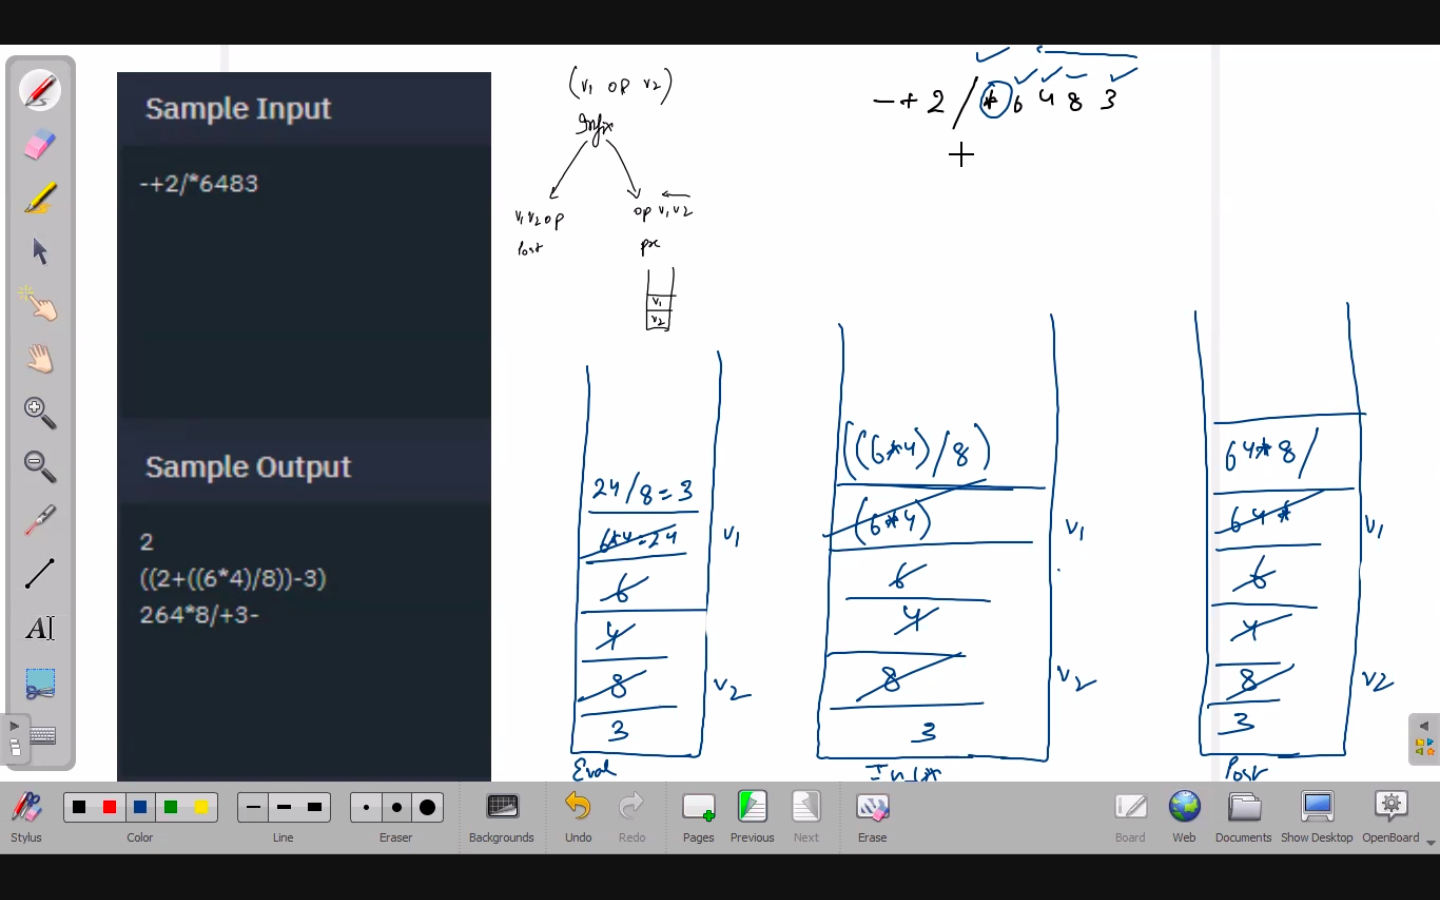 Sample Input
-+2/*6483
Sample Output
2
((2+((6*4)/8))-3)
264*8/+3-
(v1 op v2)
Infix
v1 v2 op
Post
op v1 v2
pre
v1
v2
- + 2 / * 6 4 8 3
24/8=3
6*4=24
6
4
8
3
v1
v2
Eval
((6*4)/8)
(6*4)
6
4
8
3
v1
v2
Infix
64*8/
64*
6
4
8
3
v1
v2
Post
AI
Stylus
Color
Line
Eraser
Backgrounds
Undo
Redo
Pages
Previous
Next
Erase
Board
Web
Documents
Show Desktop
OpenBoard